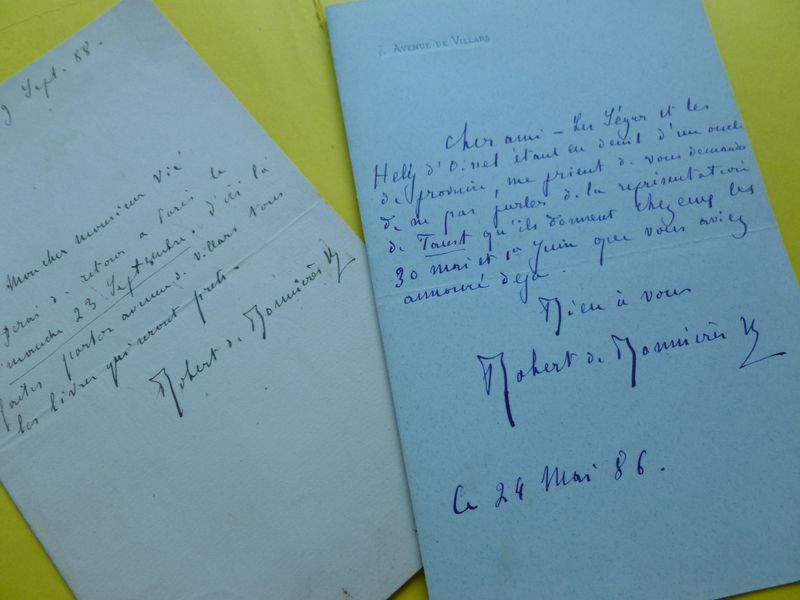 9 Sept. 88.
Mon cher monsieur Vié
serai de retour à Paris le
imanche 23 Septembre. d'ici là
faites porter avenue de Villars tous
les livres qui seront prêts.
Robert de Bonnières
7, AVENUE DE VILLARS
Cher ami – Les Ségur et les
Helly d'Oissel étant en deuil d'un oncle
de province, me prient de vous demander
de ne pas parler de la représentation
de Faust qu'ils donnent chez eux les
30 mai et 1er Juin que vous aviez
annoncé déjà.
Bien à vous
Robert de Bonnières
Ce 24 Mai 86.